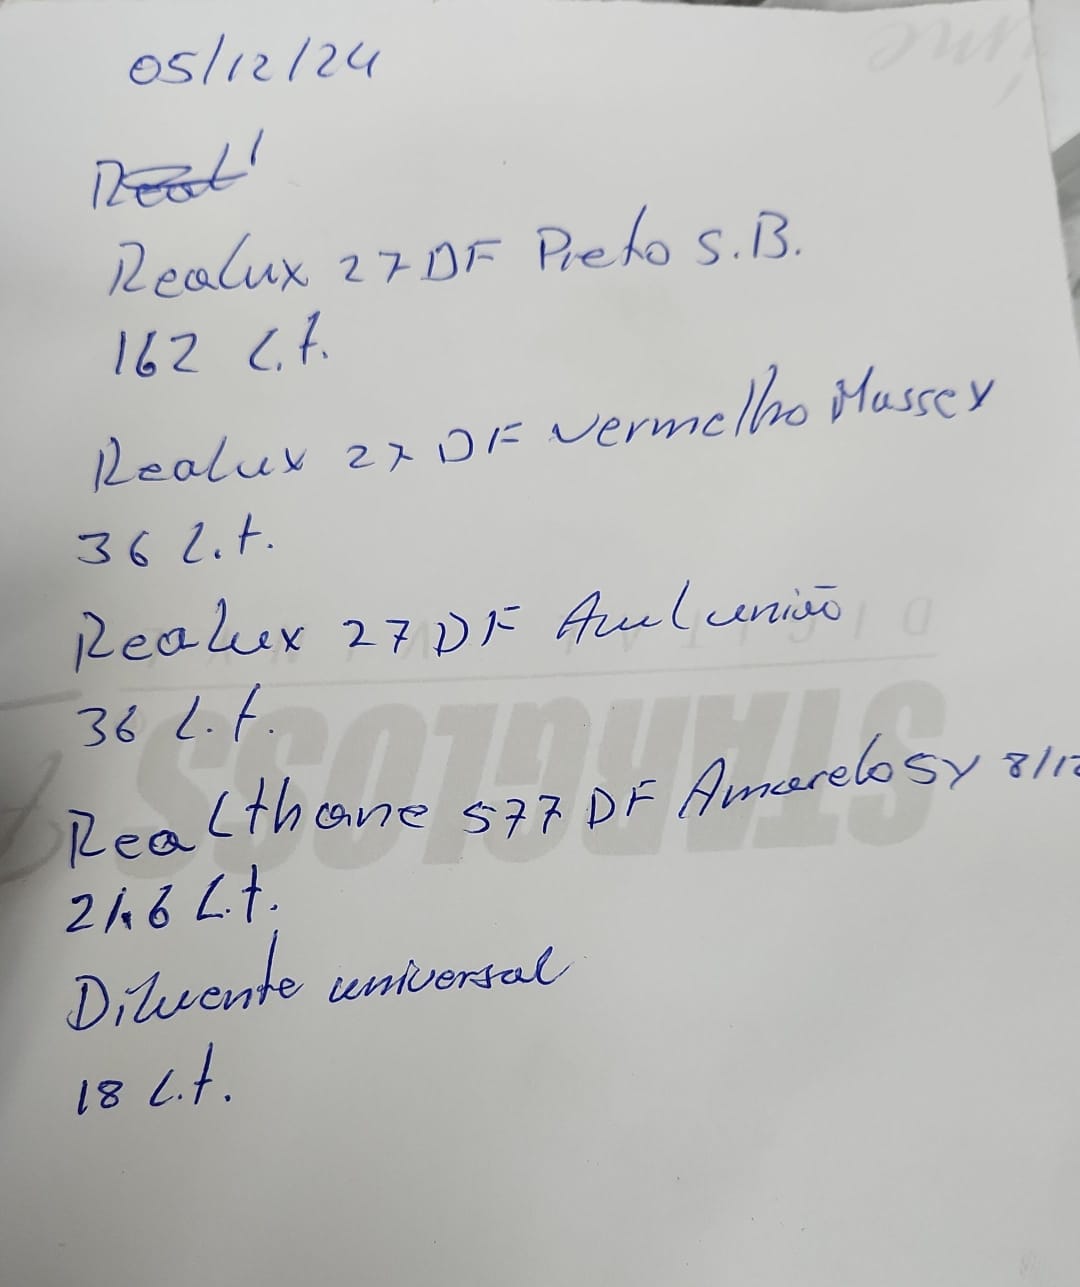 05/12/24
Realux 27 DF Preto S.B.
162 L.t.
Realux 27 DF Vermelho Massey
36 L.t.
Realux 27 DF Azul união
36 L.t.
Realthane 577 DF Amarelo 5Y 8/12
21,6 L.t.
Diluente universal
18 L.t.
STARGLOSS